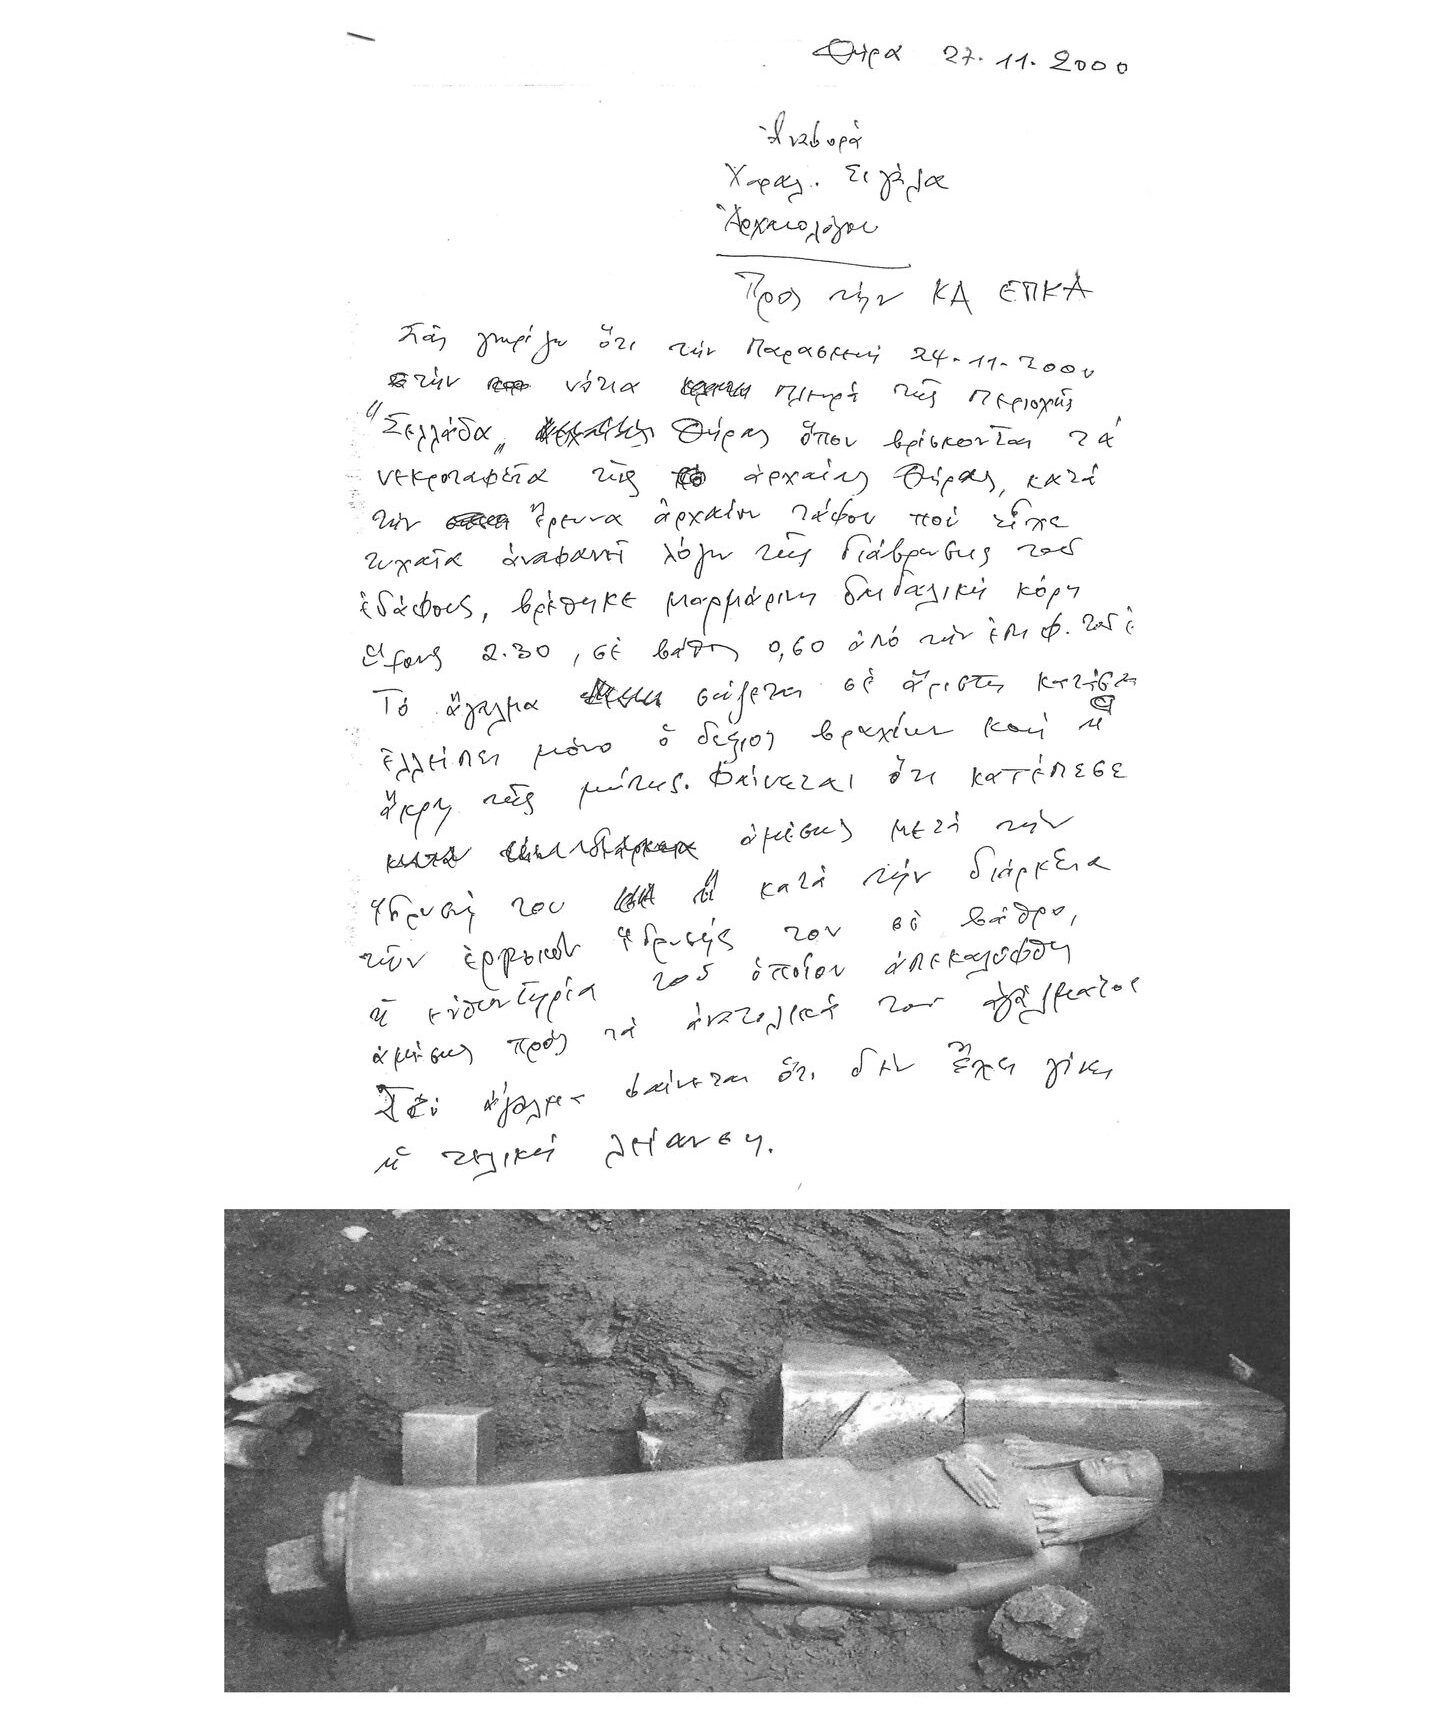 Θήρα 27.11.2000
Ἀναφορά
Χαραλ. Σιγάλα
Ἀρχαιολόγου
Πρός τήν ΚΑ ΕΠΚΑ
Σᾶς γνωρίζω ὅτι τήν Παρασκευή 24.11.2000
στήν νότια πλευρά τῆς περιοχῆς
"Σελλάδα" Θήρας ὅπου βρίσκονται τά
νεκροταφεῖα τῆς ἀρχαίας Θήρας, κατά
τήν ἔρευνα ἀρχαίου τάφου πού εἶχε
τυχαῖα ἀναφανεῖ λόγω τῆς διάβρωσης τοῦ
ἐδάφους, βρέθηκε μαρμάρινη δαιδαλική κόρη
ὕψους 2.30, σέ βάθος 0,60 ἀπό τήν ἐπιφ. τοῦ ἐ
Τό ἄγαλμα σώζεται σέ ἄριστη
ἐλλείπει μόνο ὁ δεξιός βραχίων καί ἡ
ἄκρη τῆς μύτης. Φαίνεται ὅτι κατέπεσε
ἀμέσως μετά τήν
ἵδρυσή του ἤ κατά τήν διάρκεια
τῶν ἐργασιῶν ἱδρυσής του σέ βάθρο,
ἡ εὐθυντηρία τοῦ ὁποίου ἀπεκαλύφθη
ἀμέσως πρός τά ἀνατολικά τοῦ ἀγάλματος
Τό ἄγαλμα φαίνεται ὅτι δέν ἔχει γίνει
ἡ τελική λείανση.